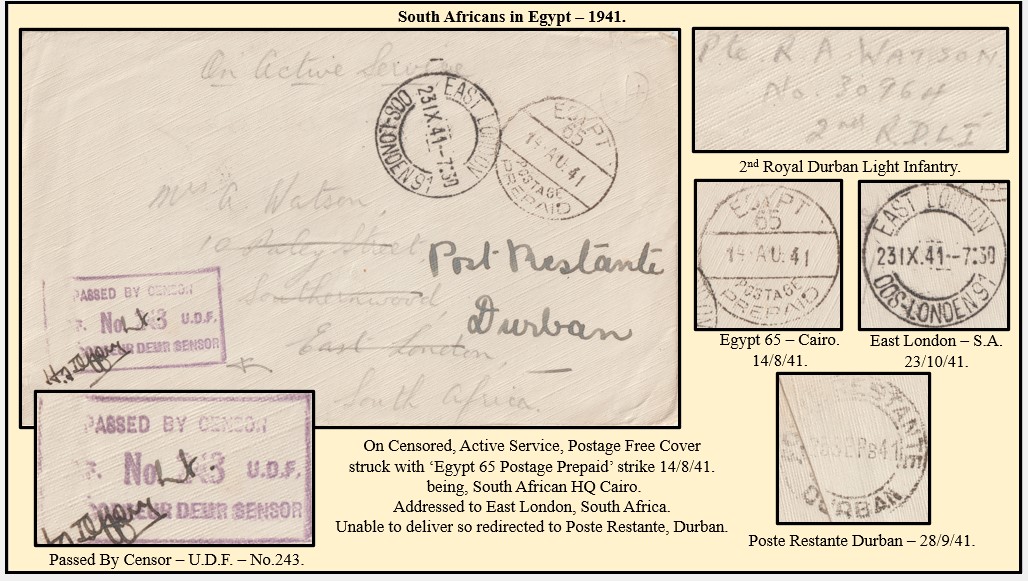 South Africans in Egypt – 1941.
On Active Service
EAST LONDON
23 IX. 41 -- 7:30
OOS-LONDEN S1
EGYPT
65
14 AU. 41
POSTAGE
PREPAID
Mrs A Watson,
10 Street
Southernwood
East London
South Africa.
Post Restante
Durban
PASSED BY CENSOR
No 3 U.D.F.
DEUR SENSOR
Pte. R A WATSON.
No. 30964
2nd R.D.L.I
2nd Royal Durban Light Infantry.
EGYPT
65
14 AU. 41
POSTAGE
PREPAID
Egypt 65 – Cairo.
14/8/41.
EAST LONDON
23 IX. 41 -- 7:30
OOS-LONDEN S1
East London – S.A.
23/10/41.
PASSED BY CENSOR
No 3 U.D.F.
DEUR SENSOR
Passed By Censor – U.D.F. – No.243.
On Censored, Active Service, Postage Free Cover
struck with ‘Egypt 65 Postage Prepaid’ strike 14/8/41.
being, South African HQ Cairo.
Addressed to East London, South Africa.
Unable to deliver so redirected to Poste Restante, Durban.
RESTANTE
DURBAN
Poste Restante Durban – 28/9/41.